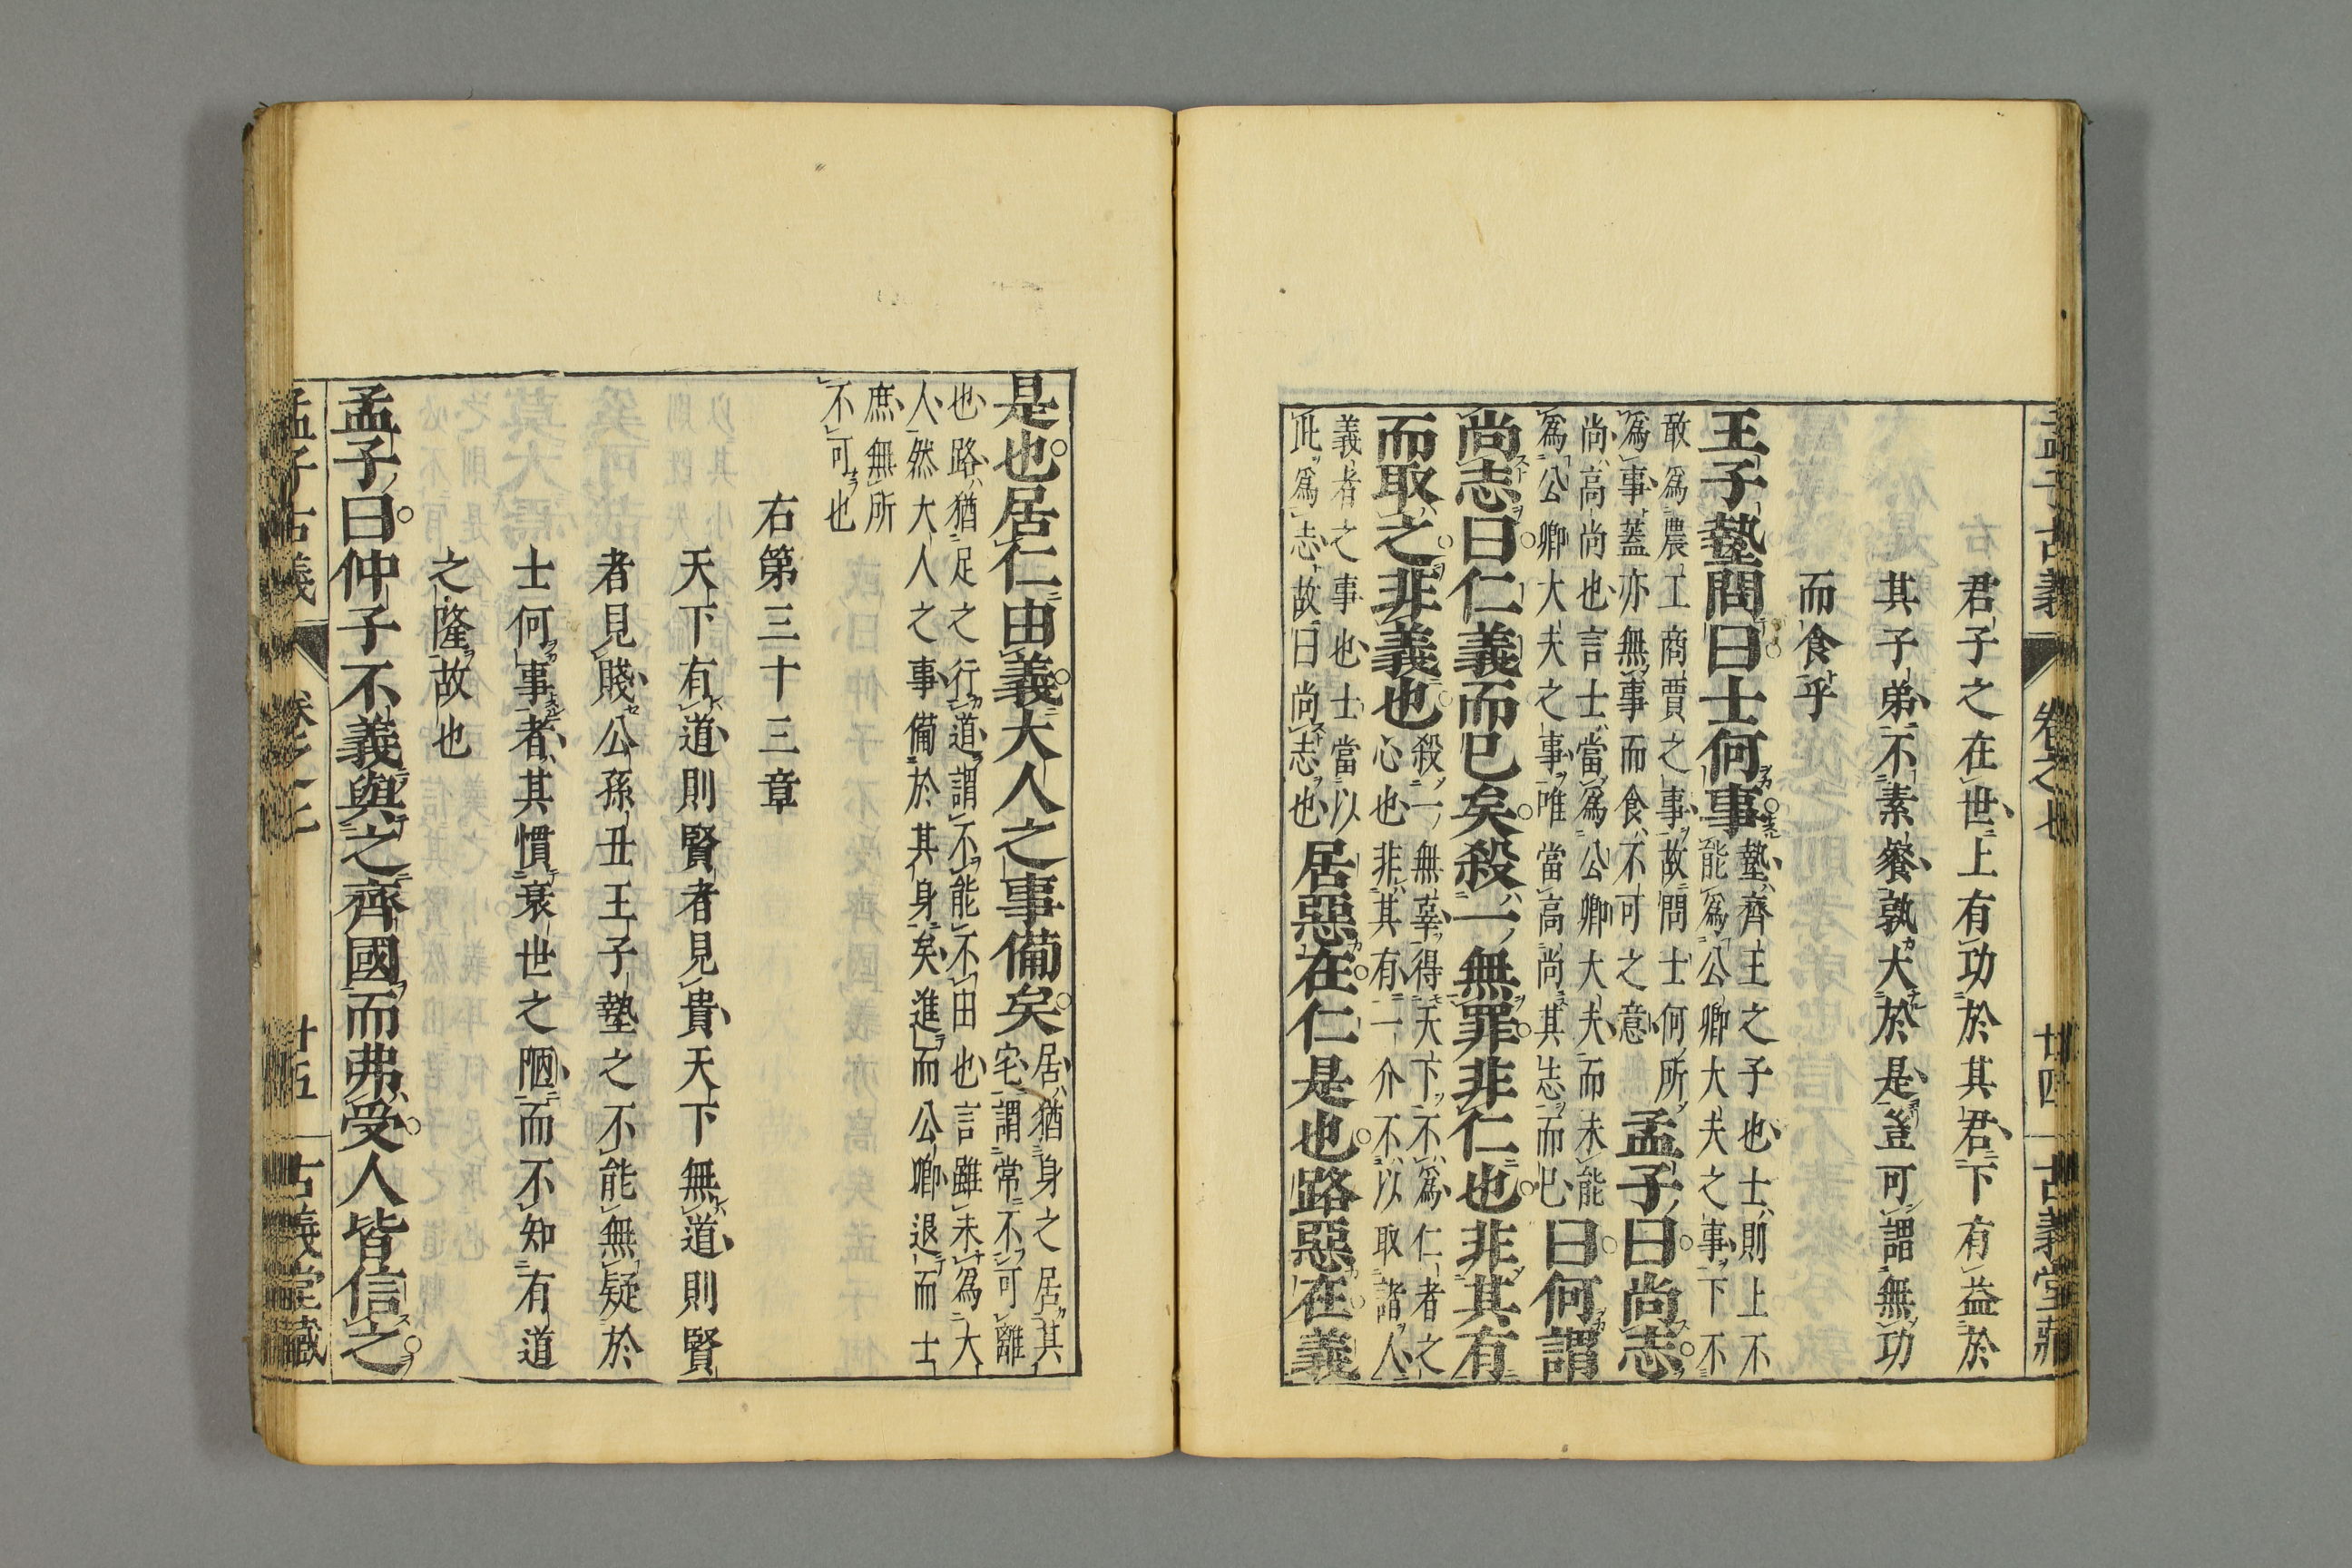 孟子古義 卷之七 廿四 古義堂藏
君子之在世上有功於其君下有益於
其子弟不素餐孰大於是豈可謂無功
而食乎
王子墊問曰士何事
墊齊王之子也士則上不
能為公卿大夫之事下不
敢為農工商賈之事故問士何所
為事蓋亦無事而食不可之意
孟子曰尚志
尚高尚也言士當為公卿大夫而未能
為公卿大夫之事唯當高尚其志而已
曰何謂
尚志曰仁義而已矣殺一無罪非仁也非其有
而取之非義也
殺一無辜得天下不為仁者之
心也非其有一介不以取諸人
義者之事也士當以
此為志故曰尚志也
居惡在仁是也路惡在義
是也居仁由義大人之事備矣
居猶身之居其
宅謂常不可離
也路猶足之行道謂不能不由也言雖未為大
人然大人之事備於其身矣進而公卿退而士
庶無所
不可也
右第三十三章
天下有道則賢者見貴天下無道則賢
者見賤公孫丑王子墊之不能無疑於
士何事者其慣衰世之陋而不知有道
之隆故也
孟子曰仲子不義與之齊國而弗受人皆信之
孟子古義 卷之七 廿五 古義堂藏